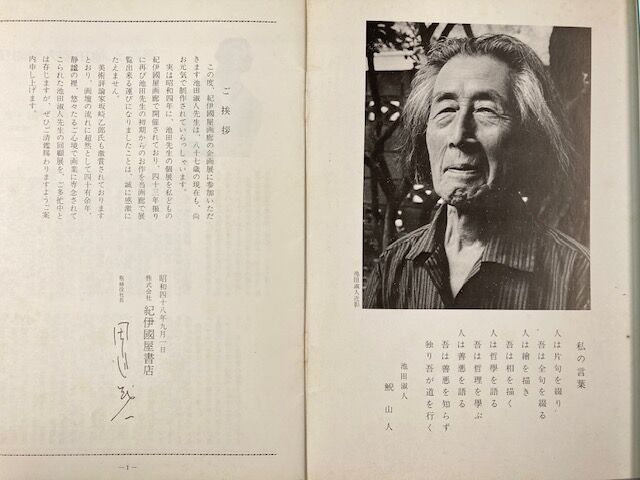 ご挨拶
この度、紀伊國屋画廊の企画展に参加いただ
きます池田淑人先生は、八十七歳の現在も、尚
お元気で創作されていらっしゃいます。
実は昭和四年に、池田先生の個展を私どもの
紀伊國屋画廊で開催されており、四十三年振り
に再び池田先生の初期からのお作を当画廊で展
覧出来る運びになりましたことは、誠に感激に
たえません。
美術評論家坂崎乙郎氏も激賞されております
とおり、画壇の流れに超然として四十有余年、
静謐の裡、悠々たるご心境で画業に専念されて
こられた池田淑人先生の回顧展を、ご多忙中と
は存じますが、ぜひご清鑑賜わりますようご案
内申し上げます。
昭和四十八年九月一日
株式会社 紀伊國屋書店
取締役社長
—1—
池田淑人近影
私の言葉
人は片句を綴り
吾は全句を綴る
人は繪を描き
吾は相を描く
人は哲學を語る
吾は哲理を學ぶ
人は善悪を語る
吾は善悪を知らず
独り吾が道を行く
池田淑人
山人